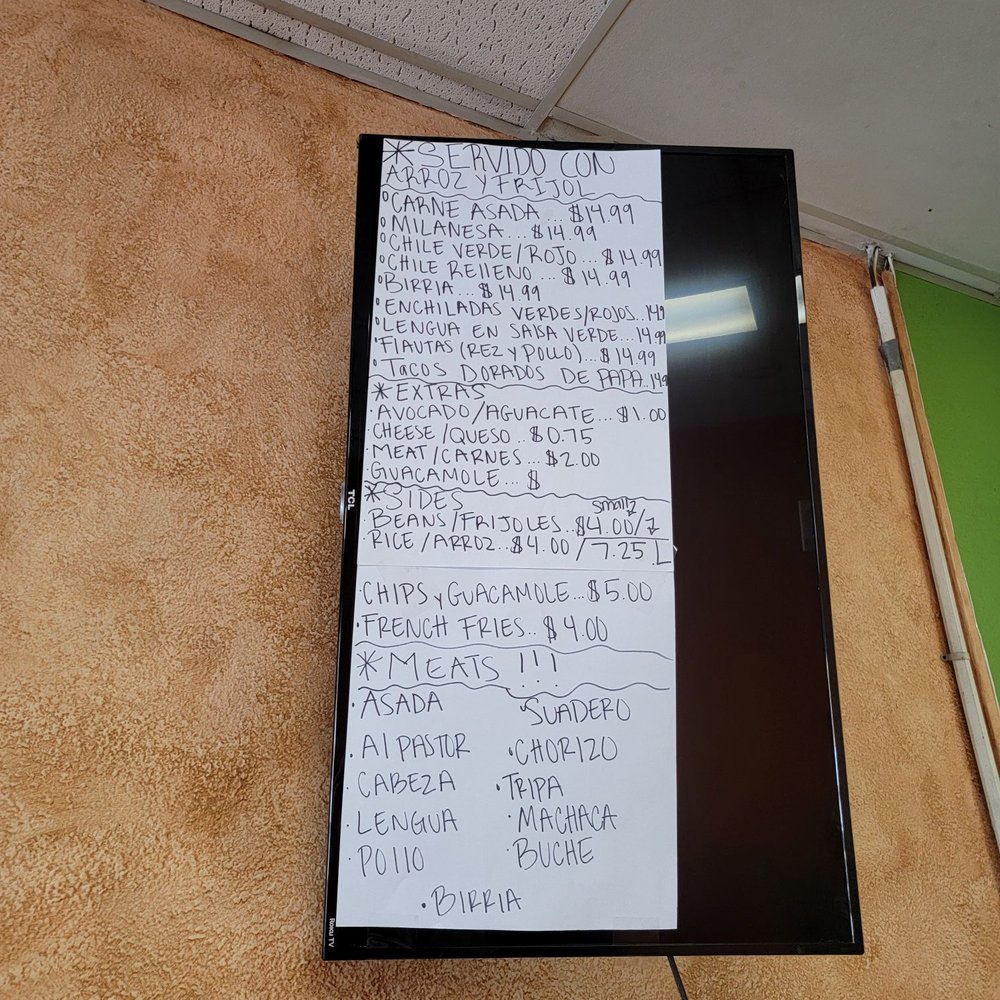 *SERVIDO CON
ARROZ Y FRIJOL
CARNE ASADA... $14.99
MILANESA... $14.99
CHILE VERDE/ROJO... $14.99
CHILE RELLENO... $14.99
BIRRIA... $14.99
ENCHILADAS VERDES/ROJOS..
LENGUA EN SALSA VERDE... 14.99
FLAUTAS (REZ Y POLLO)... $14.99
TACOS DORADOS DE PAPA..
*EXTRAS
AVOCADO/AGUACATE... $1.00
CHEESE/QUESO.. $0.75
MEAT/CARNES... $2.00
GUACAMOLE... $
*SIDES
small
BEANS/FRIJOLES.. $4.00/7
RICE/ARROZ.. $4.00/7.25 L
CHIPS y GUACAMOLE... $5.00
FRENCH FRIES.. $4.00
*MEATS !!!
ASADA
SUADERO
Al PASTOR
CHORIZO
CABEZA
TRIPA
LENGUA
MACHACA
POLLO
BUCHE
BIRRIA
TCL
Roku TV